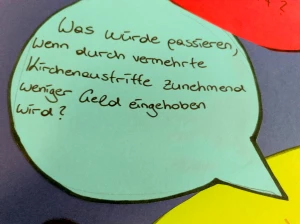 Was würde passieren,
wenn durch vermehrte
Kirchenaustritte zunehmend
weniger Geld eingehoben
wird?
?